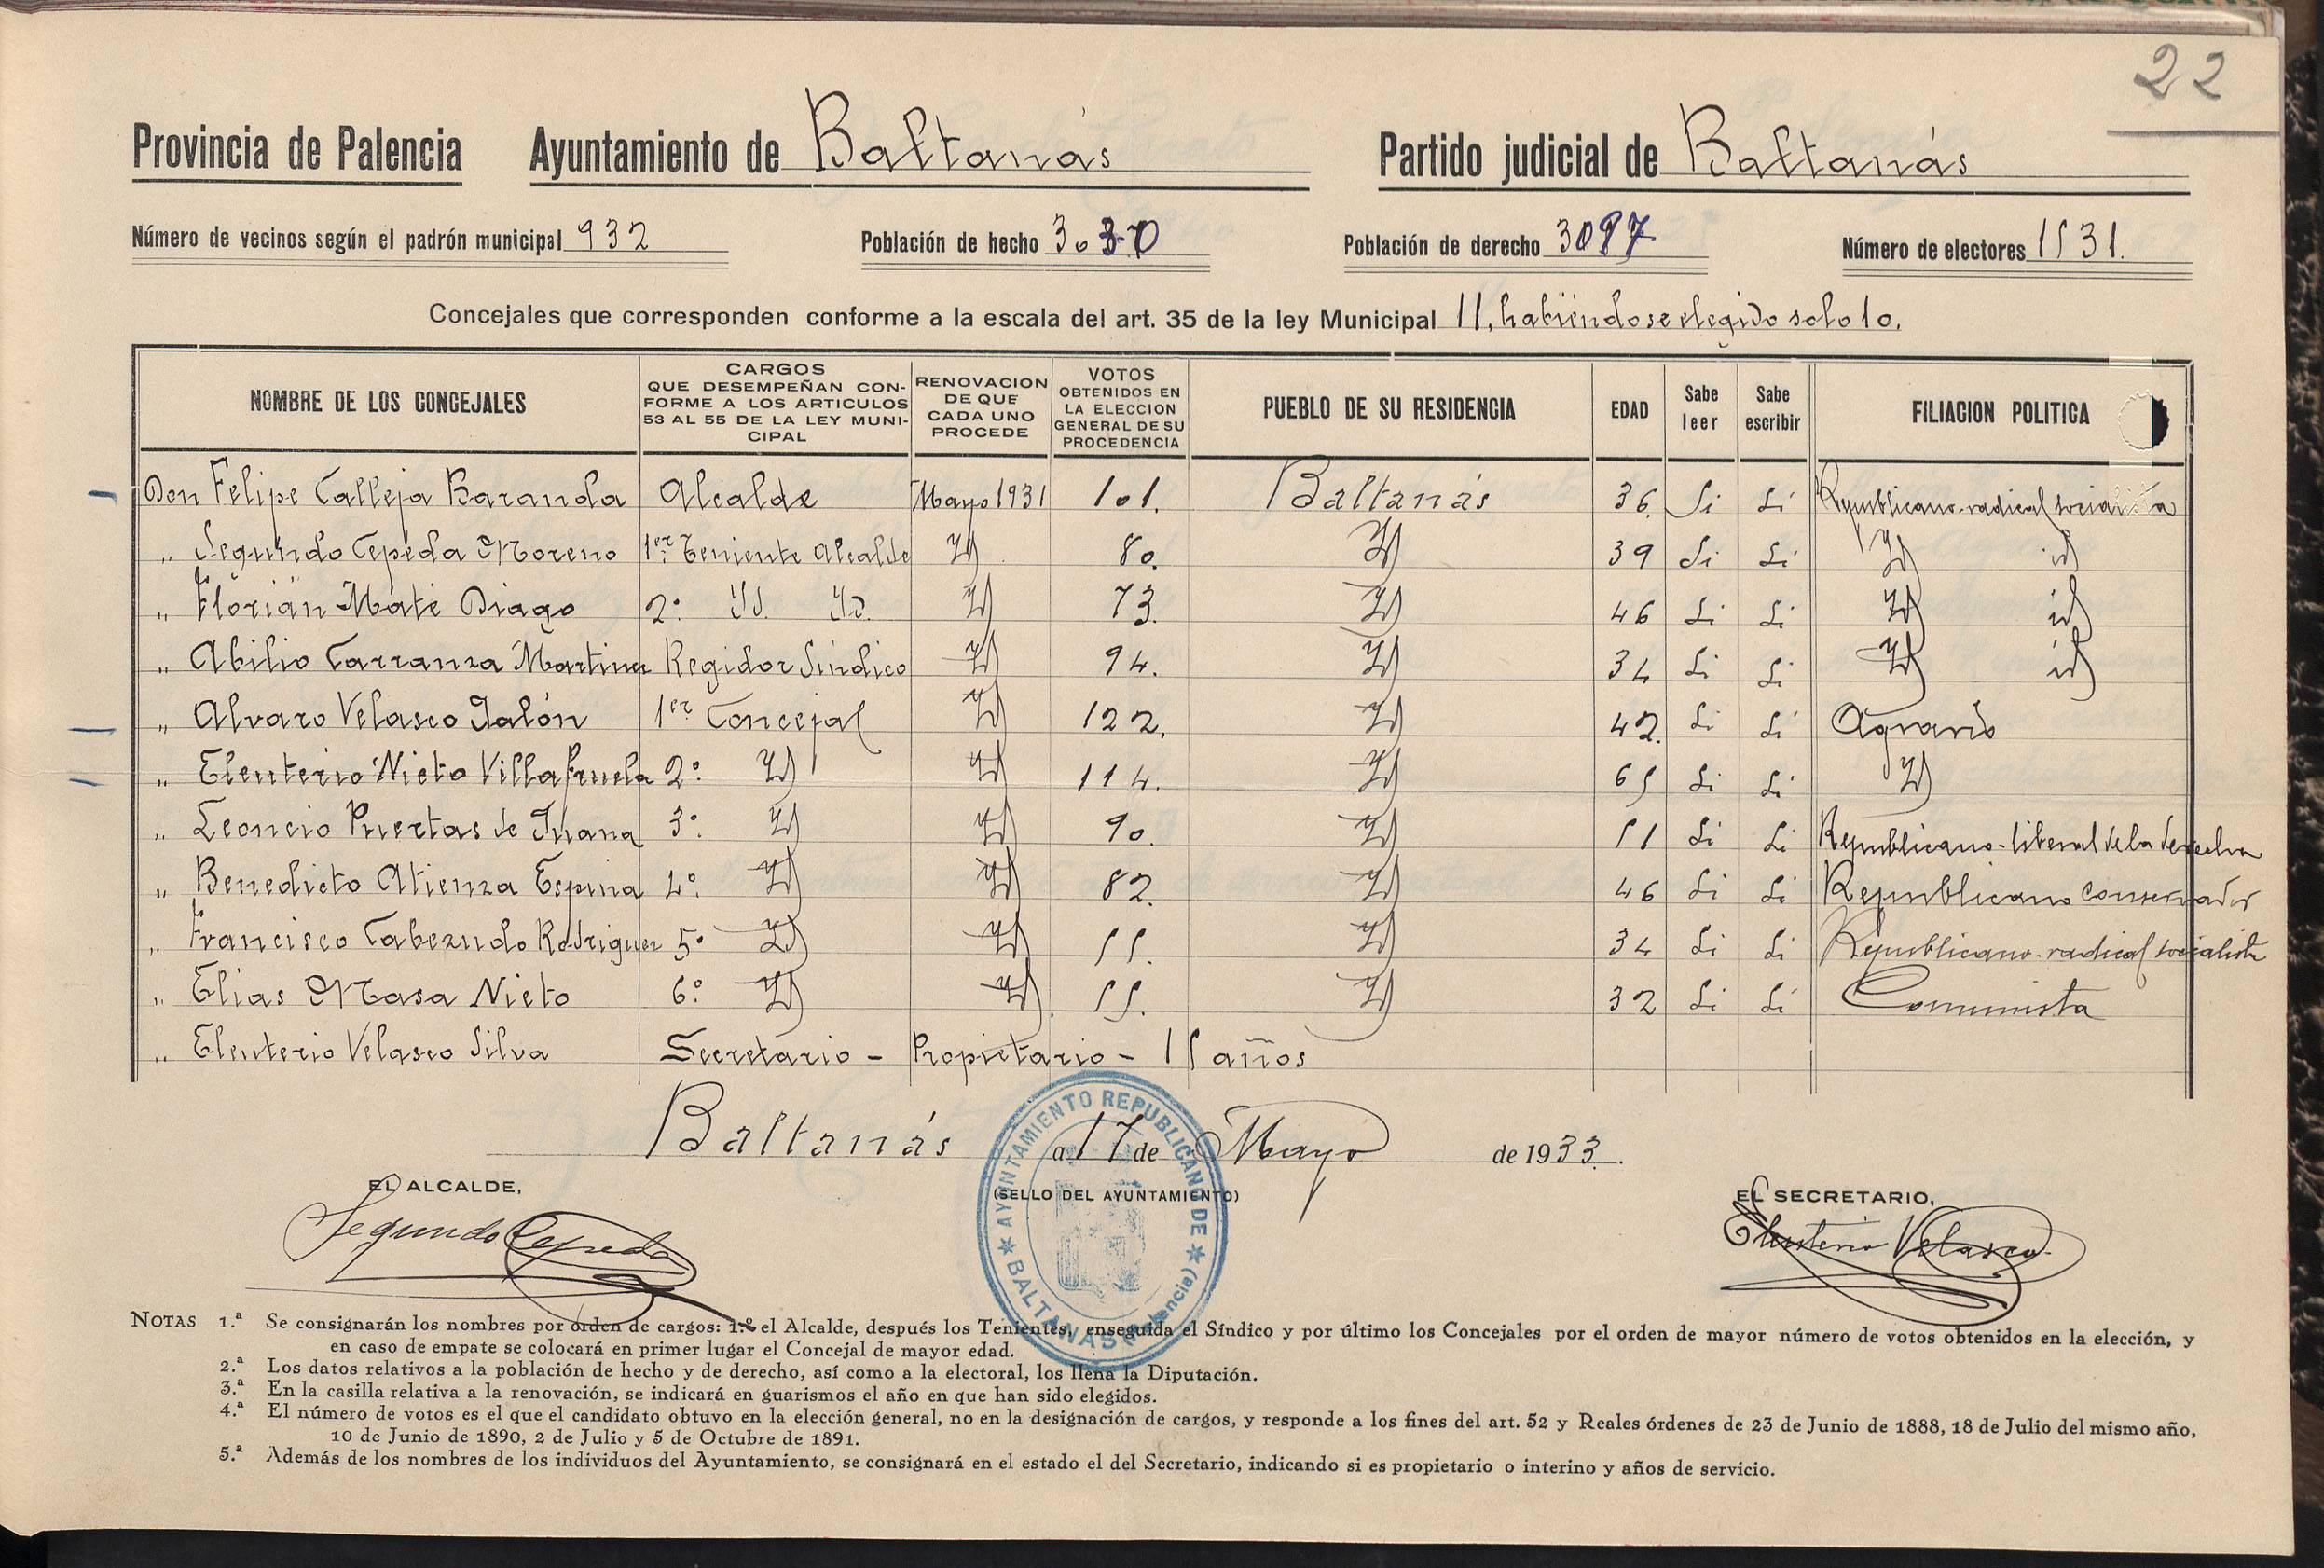 22
Provincia de Palencia Ayuntamiento de Baltanás Partido judicial de Baltanás
Número de vecinos según el padrón municipal 932 Población de hecho 3030 Población de derecho 3097 Número de electores 1531.
Concejales que corresponden conforme a la escala del art. 35 de la ley Municipal 11, habiéndose elegido solo 10.
NOMBRE DE LOS CONCEJALES CARGOS QUE DESEMPEÑAN CON- FORME A LOS ARTICULOS 53 AL 55 DE LA LEY MUNI- CIPAL RENOVACION DE QUE CADA UNO PROCEDE VOTOS OBTENIDOS EN LA ELECCION GENERAL DE SU PROCEDENCIA PUEBLO DE SU RESIDENCIA EDAD Sabe leer Sabe escribir FILIACION POLITICA
Don Felipe Calleja Baranda Alcalde Mayo 1931 101. Baltanás 36. Si Si Republicano-radical socialista
" Segundo Cepeda Moreno 1er. Teniente Alcalde Id 80. Id 39 Si Si Id id
" Florián Maté Diago 2º Id. Id. Id 73. Id 46 Si Si Id id
" Abilio Carranza Martinez Regidor Síndico Id 94. Id 34 Si Si Id id
" Alvaro Velasco Jalón 1er Concejal Id 122. Id 42. Si Si Agrario
" Eleuterio Nieto Villafruela 2º Id Id 114. Id 65 Si Si Id
" Leoncio Puertas de Juana 3º Id Id 90. Id 51 Si Si Republicano-liberal de la derecha
" Benedicto Atienza Espina 4º Id Id 82. Id 46 Si Si Republicano conservador
" Francisco Cabezudo Rodriguez 5º Id Id 55. Id 34 Si Si Republicano-radical socialista
" Elias Masa Nieto 6º Id Id. 55. Id 32 Si Si Comunista
" Eleuterio Velasco Silva Secretario - Propietario - 15 años
Baltanás a 17 de Mayo de 1933.
EL ALCALDE, (SELLO DEL AYUNTAMIENTO) EL SECRETARIO,
Segundo Cepeda Eleuterio Velasco
AYUNTAMIENTO REPUBLICANO DE BALTANAS (Palencia)
NOTAS 1.ª Se consignarán los nombres por orden de cargos: 1.º el Alcalde, después los Tenientes, enseguida el Síndico y por último los Concejales por el orden de mayor número de votos obtenidos en la elección, y
en caso de empate se colocará en primer lugar el Concejal de mayor edad.
2.ª Los datos relativos a la población de hecho y de derecho, así como a la electoral, los llena la Diputación.
3.ª En la casilla relativa a la renovación, se indicará en guarismos el año en que han sido elegidos.
4.ª El número de votos es el que el candidato obtuvo en la elección general, no en la designación de cargos, y responde a los fines del art. 52 y Reales órdenes de 23 de Junio de 1888, 18 de Julio del mismo año,
10 de Junio de 1890, 2 de Julio y 5 de Octubre de 1891.
5.ª Además de los nombres de los individuos del Ayuntamiento, se consignará en el estado el del Secretario, indicando si es propietario o interino y años de servicio.